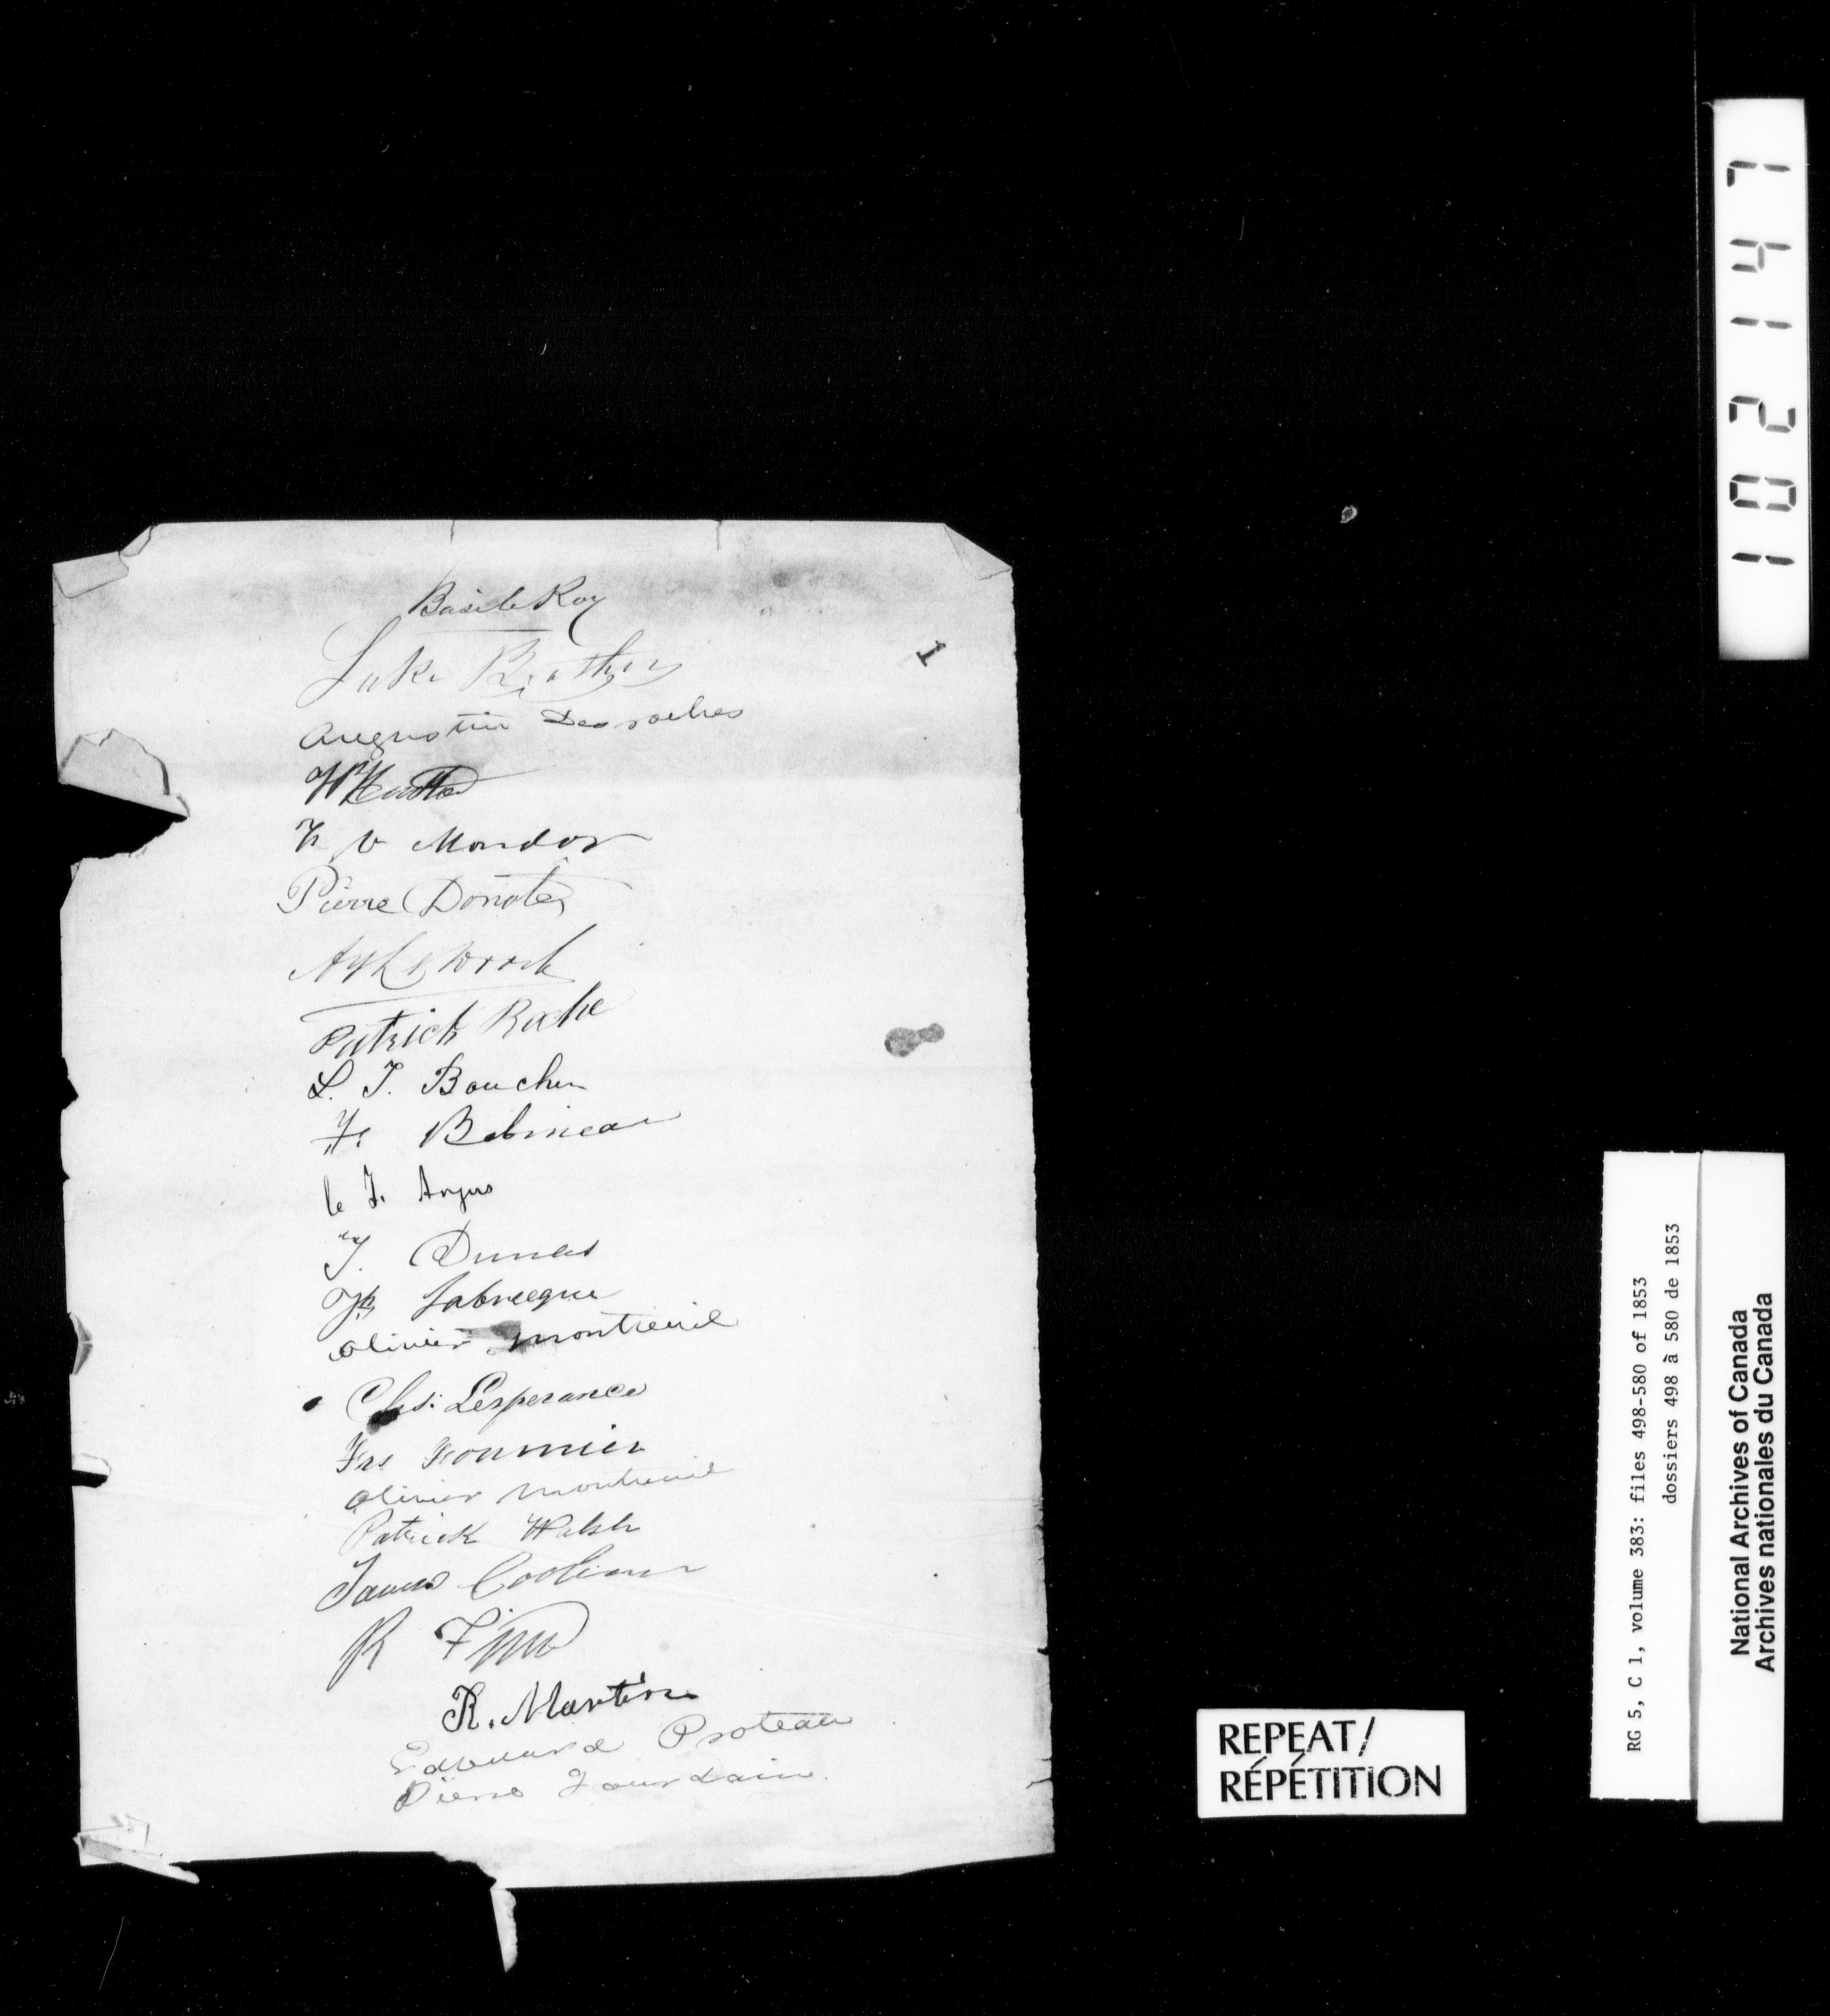 Basile Roy
Luke Brothers
1
Augustin Desroches
F. V Mondor
Pierre Donate
Patrick Roche
L. J. Boucher
Fs Babineau
le J. Argus
J. Dumas
Jh Labrecque
Olivier Montreuil
Chs: Lesperance
Frs Fournier
Olivier Montreuil
Patrick Walsh
James
R
R. Martin
Edouard Proteau
Pierre Jourdain.
102147
RG 5, C 1, volume 383: files 498-580 of 1853
dossiers 498 à 580 de 1853
National Archives of Canada
Archives nationales du Canada
REPEAT/
RÉPÉTITION